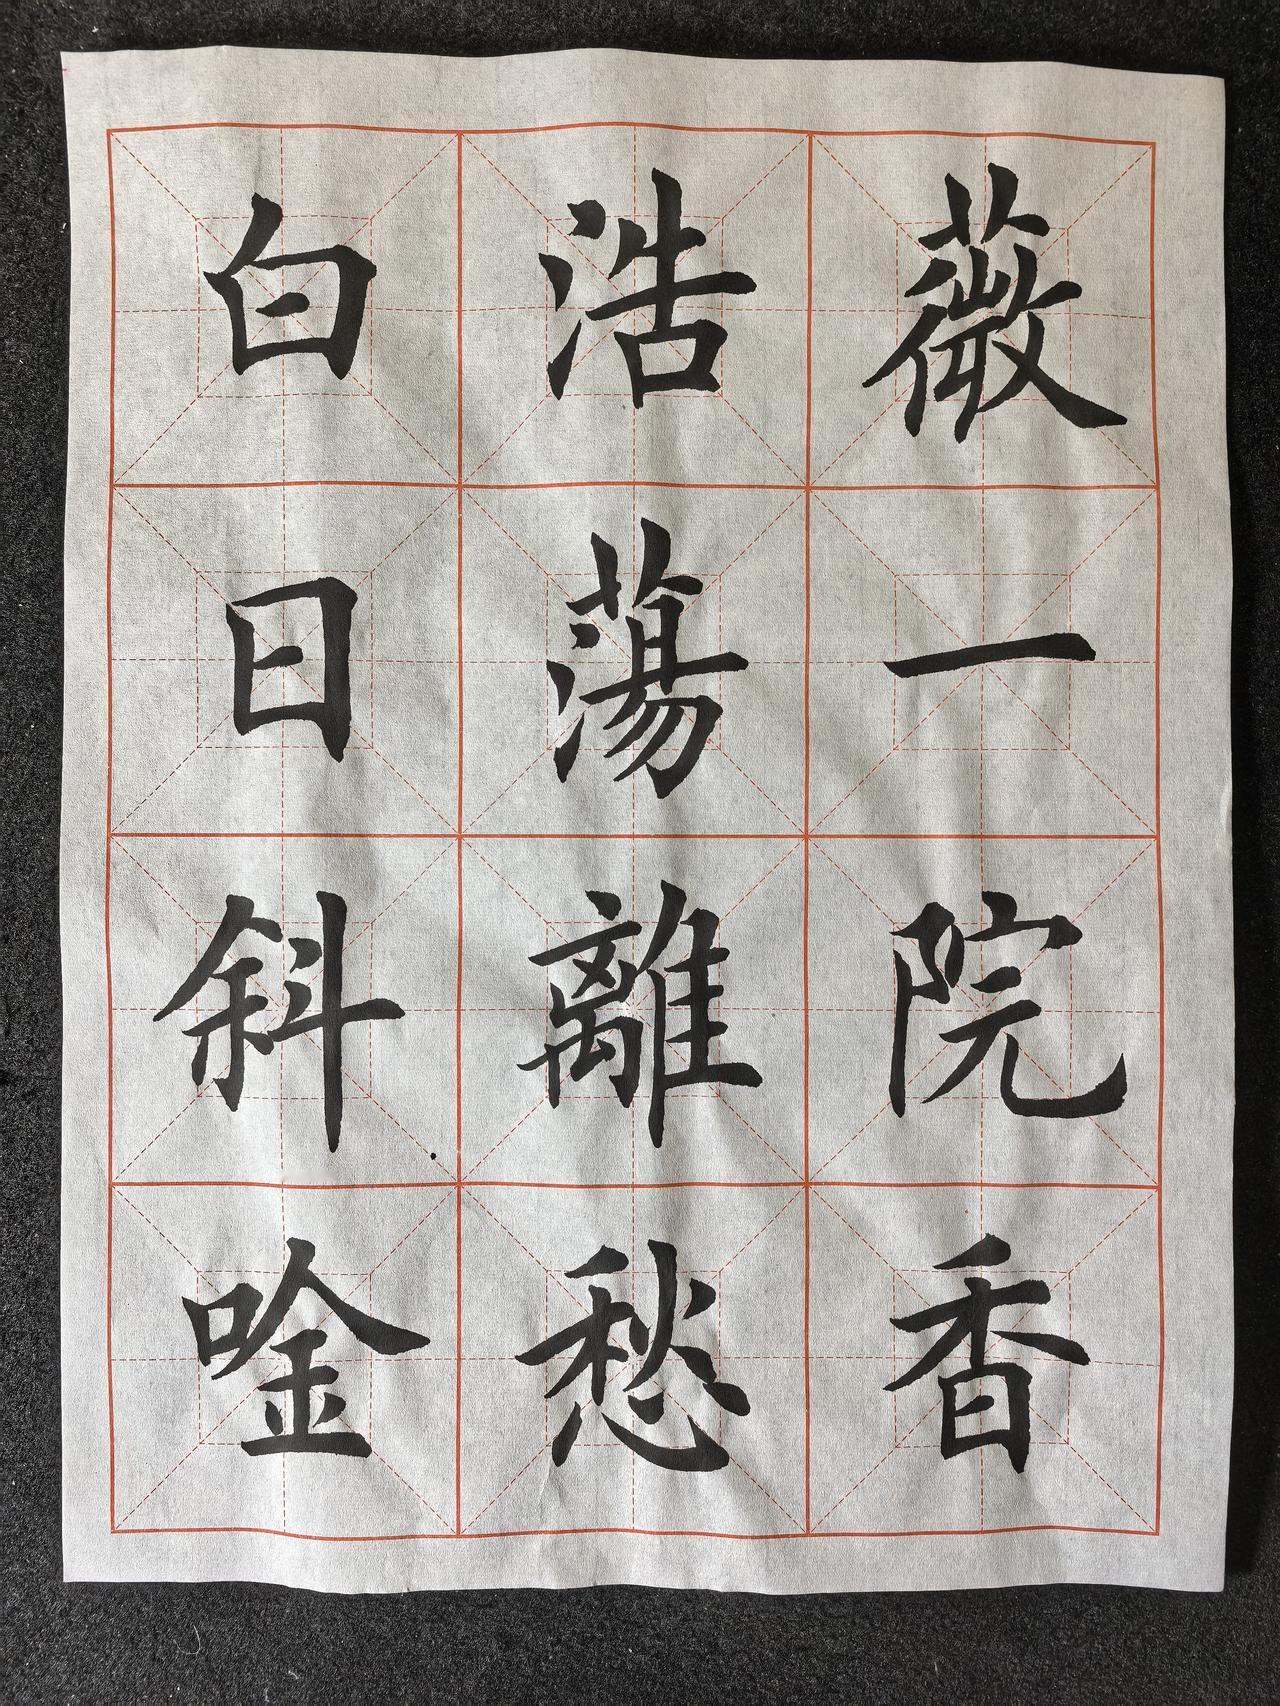 薇一院香
浩蕩離愁
白日斜唫